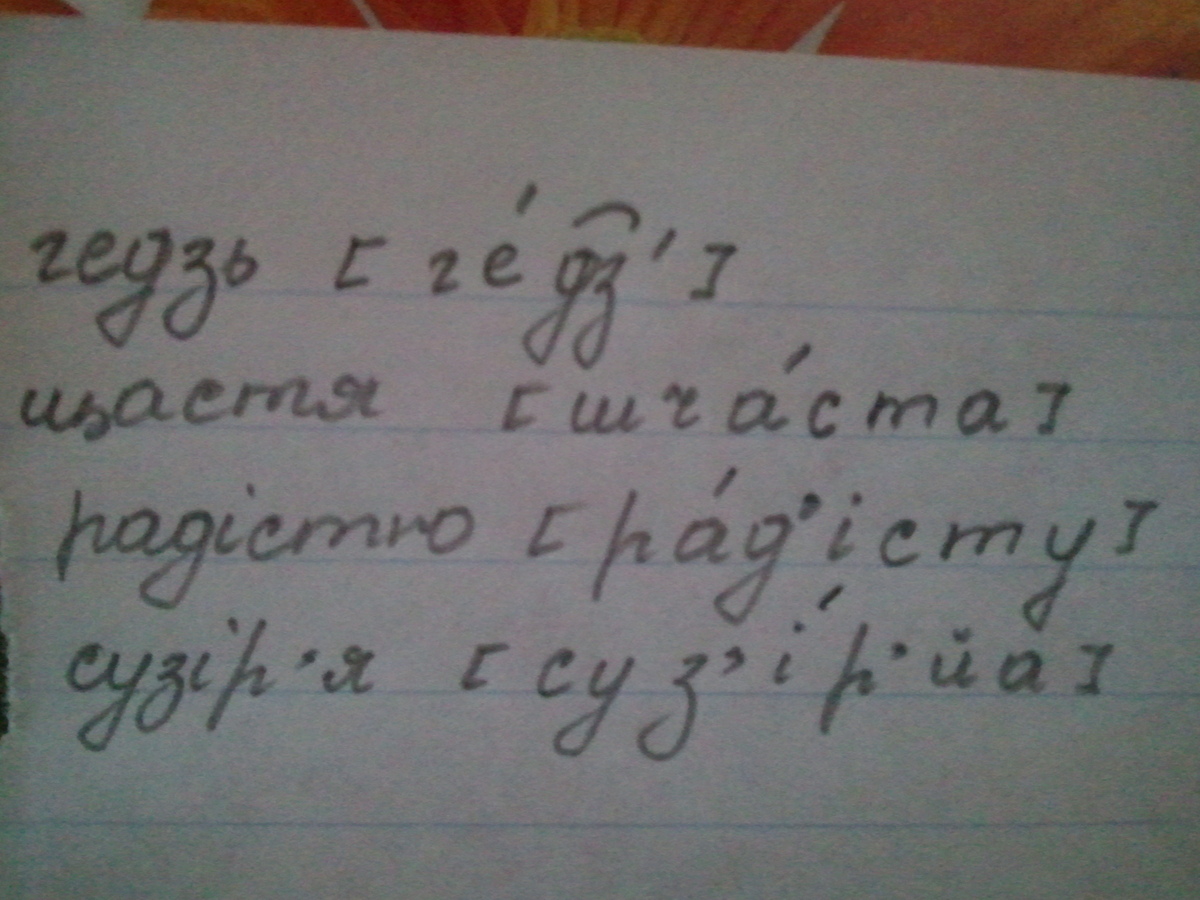 гедзь [ге́д͡з']
щастя [шча́ста]
радістю [ра́д'істу]
сузір'я [суз'і́р'йа]